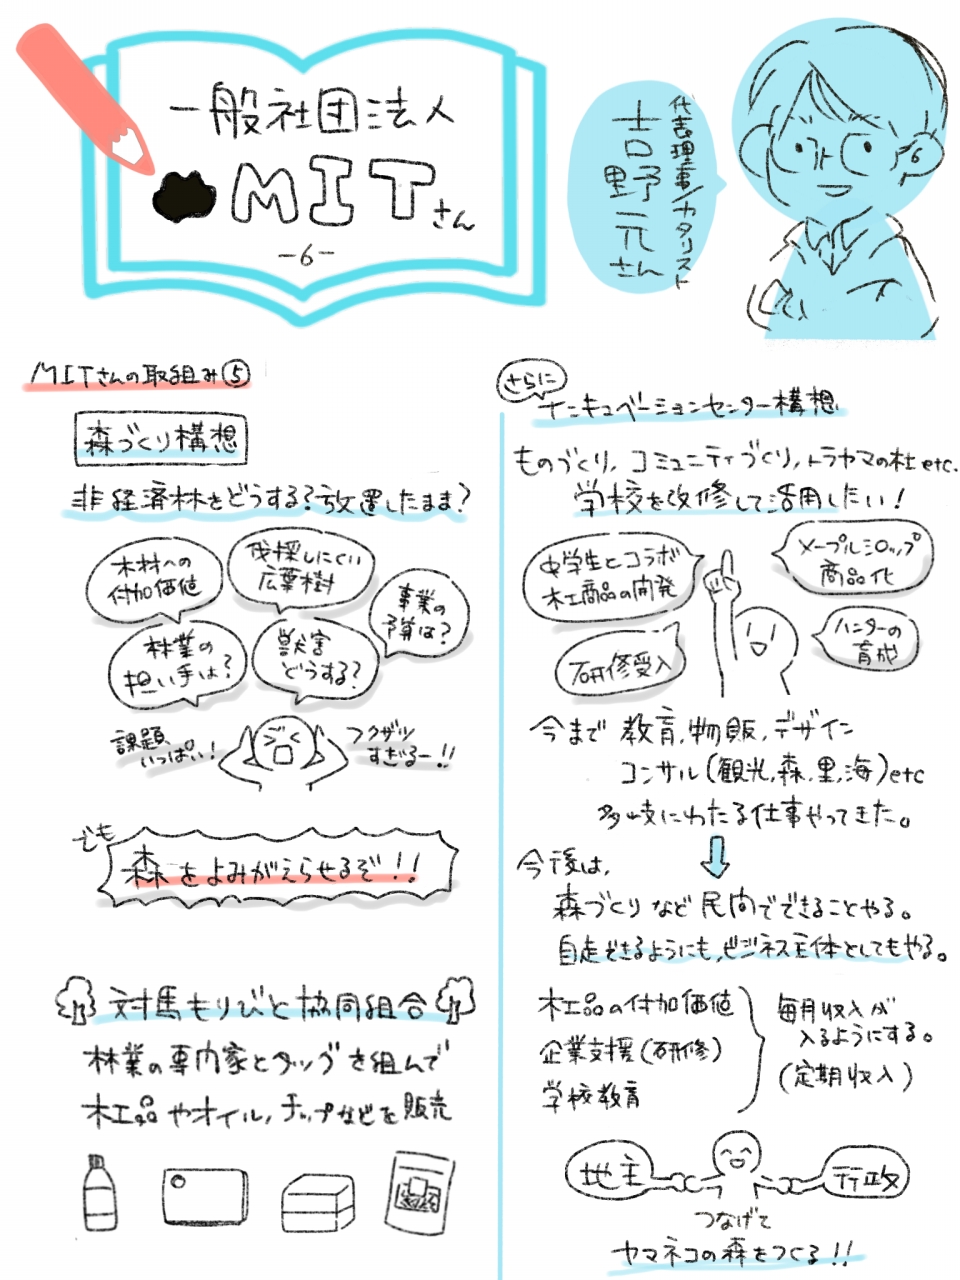 一般社団法人
MITさん
-6-
代表理事/カタリスト
吉野元さん
MITさんの取組み⑤
森づくり構想
非経済林をどうする?放置したまま?
木材への
付加価値
伐採しにくい
広葉樹
事業の
予算は?
林業の
担い手は?
獣害
どうする?
課題
いっぱい!
フクザツ
すぎるー!!
でも
森をよみがえらせるぞ!!
対馬もりびと協同組合
林業の専門家とタッグを組んで
木工品やオイル,チップなどを販売
さらに
インキュベーションセンター構想
ものづくり,コミュニティづくり,トラヤマの杜etc.
学校を改修して活用したい!
中学生とコラボ
木工商品の開発
メープルシロップ
商品化
研修受入
ハンターの
育成
今まで教育,物販,デザイン
コンサル(観光,森,里,海)etc
多岐にわたる仕事やってきた。
今後は,
森づくりなど民間でできることやる。
自走できるようにも,ビジネス主体としてもやる。
木工品の付加価値
企業支援(研修)
学校教育
毎月収入が
入るようにする。
(定期収入)
地主
行政
つなげて
ヤマネコの森をつくる!!